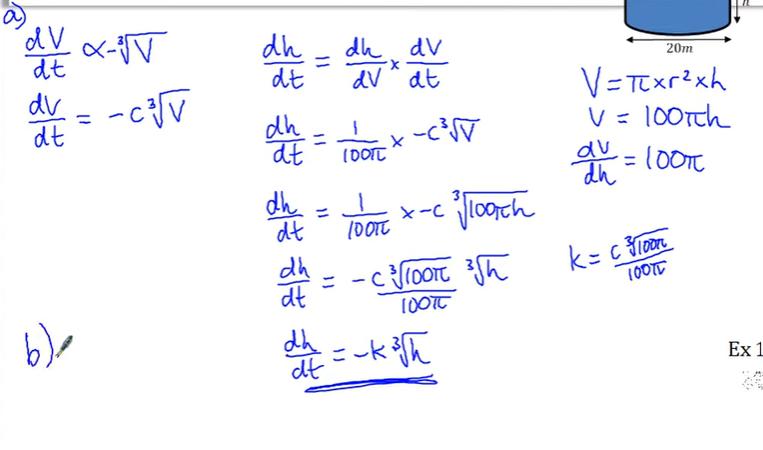 a)
dV/dt ∝ -∛V
dV/dt = -c∛V
dh/dt = dh/dV × dV/dt
dh/dt = 1/100π × -c∛V
dh/dt = 1/100π × -c ∛100πh
dh/dt = -c∛100π/100π ∛h
dh/dt = -k∛h
h
20m
V = π×r²×h
V = 100πh
dV/dh = 100π
k = c∛100π/100π
b)
Ex 1